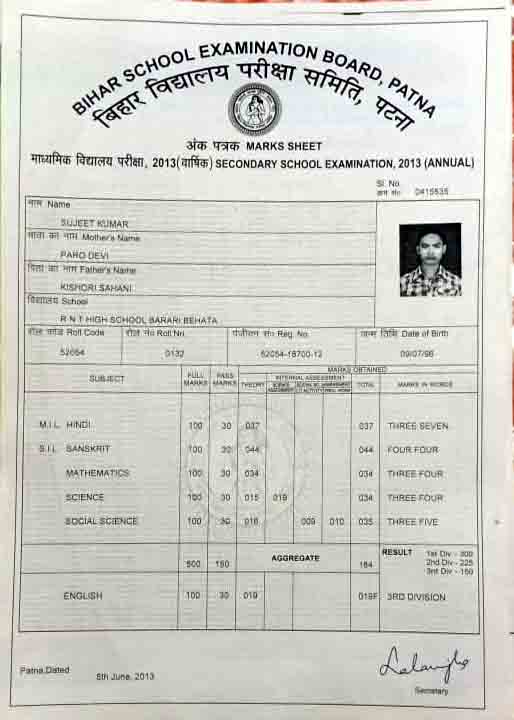 BIHAR SCHOOL EXAMINATION BOARD, PATNA
बिहार विद्यालय परीक्षा समिति, पटना
अंक पत्रक MARKS SHEET
माध्यमिक विद्यालय परीक्षा, 2013(वार्षिक) SECONDARY SCHOOL EXAMINATION, 2013 (ANNUAL)
Sl. No.
क्रम सं० 0415535
नाम Name
SUJEET KUMAR
माता का नाम Mother's Name
PARO DEVI
पिता का नाम Father's Name
KISHORI SAHANI
विद्यालय School
R N T HIGH SCHOOL BARARI BEHATA
रौल कोड Roll Code रौल नं० Roll No. पंजीयन सं० Reg. No. जन्म तिथि Date of Birth
52054 0132 52054-18700-12 09/07/96
SUBJECT FULL MARKS PASS MARKS THEORY MARKS OBTAINED
INTERNAL ASSESSMENT TOTAL MARKS IN WORDS
M.I.L. HINDI 100 30 037 037 THREE SEVEN
S.I.L. SANSKRIT 100 30 044 044 FOUR FOUR
MATHEMATICS 100 30 034 034 THREE FOUR
SCIENCE 100 30 015 019 034 THREE FOUR
SOCIAL SCIENCE 100 30 016 009 010 035 THREE FIVE
500 150 AGGREGATE 184 RESULT 1st Div - 300
2nd Div - 225
3rd Div - 150
ENGLISH 100 30 019 019F 3RD DIVISION
Patna,Dated 5th June, 2013
Secretary